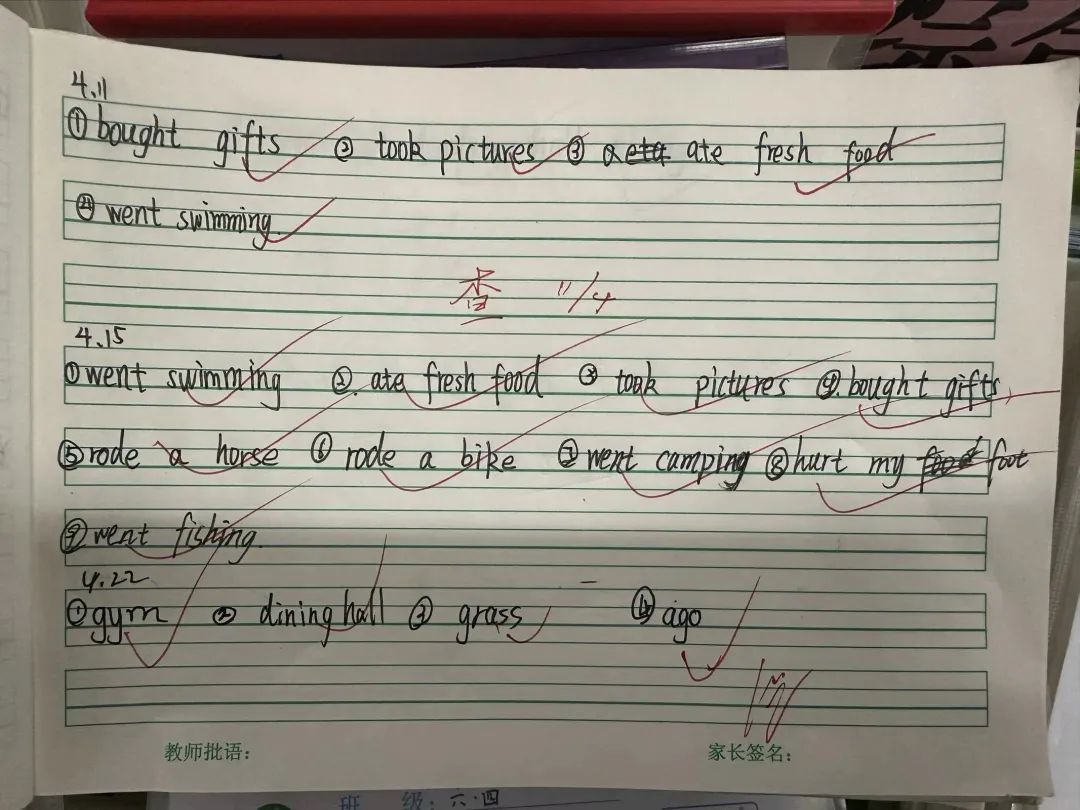 4.11
① bought gifts ② took pictures ③ ate fresh food
④ went swimming.
查 11/4
4.15
① went swimming ②. ate fresh food ③ took pictures ④. bought gifts,
⑤ rode a horse ⑥ rode a bike ⑦ went camping ⑧ hurt my foot
⑨ went fishing.
4.22
① gym ② dining hall ③ grass ④ ago
教师批语： 家长签名：
班 级：六.四